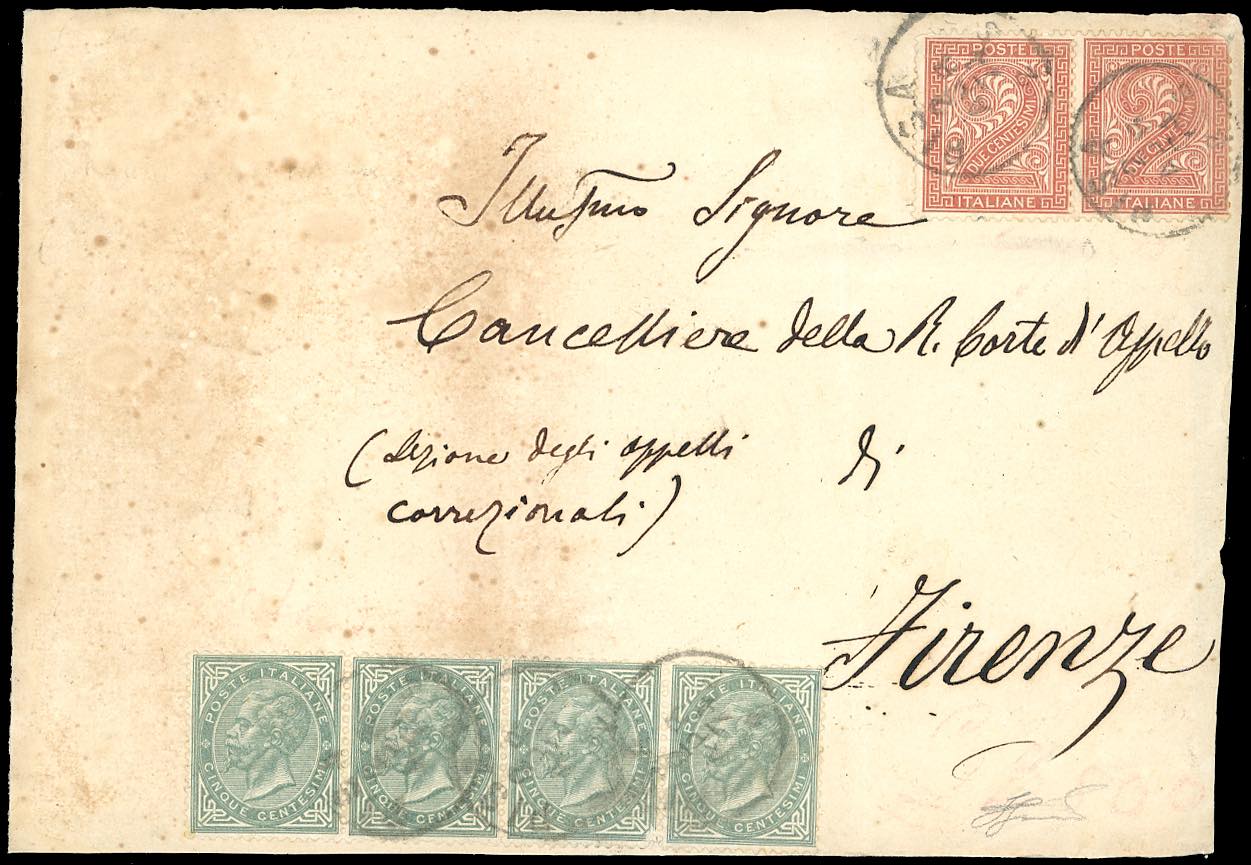 POSTE POSTE
DUE CENTESIMI DUE CENTESIMI
2 2
ITALIANE ITALIANE
Illustmo Signore
Cancelliere della R. Corte d'Appello
(Sezione degli appelli di
correzionali)
Firenze
POSTE ITALIANE POSTE ITALIANE POSTE ITALIANE POSTE ITALIANE
CINQUE CENTESIMI CINQUE CENTESIMI CINQUE CENTESIMI CINQUE CENTESIMI